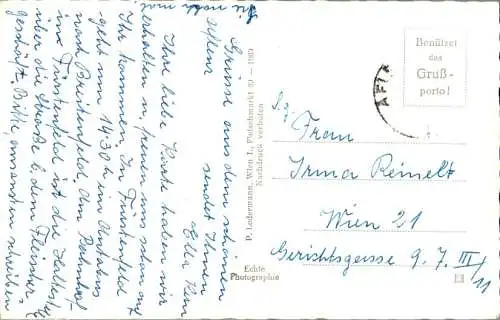 Grüsse aus dem schönen
sendet Ihnen
Ella
Ihre liebe Karte haben wir
erhalten u. freuen uns schon auf
Ihr kommen. In Fürstenfeld
geht um 14.30 h ein Autobus
nach Breitenfeld. Am Bahnhof
in Fürstenfeld ist die
über die Straße b. dem Fleischer
geschäft. Bitte, schreiben
Sie noch mal.
P. Ledermann, Wien I., Fleischmarkt 20 - 1960
Nachdruck verboten
Echte
Photographie
Benützet
das
Gruß-
porto!
AFIA
S. g.
Frau
Irma Reinelt
Wien 21
Gerichtsgasse 9.7. III/11